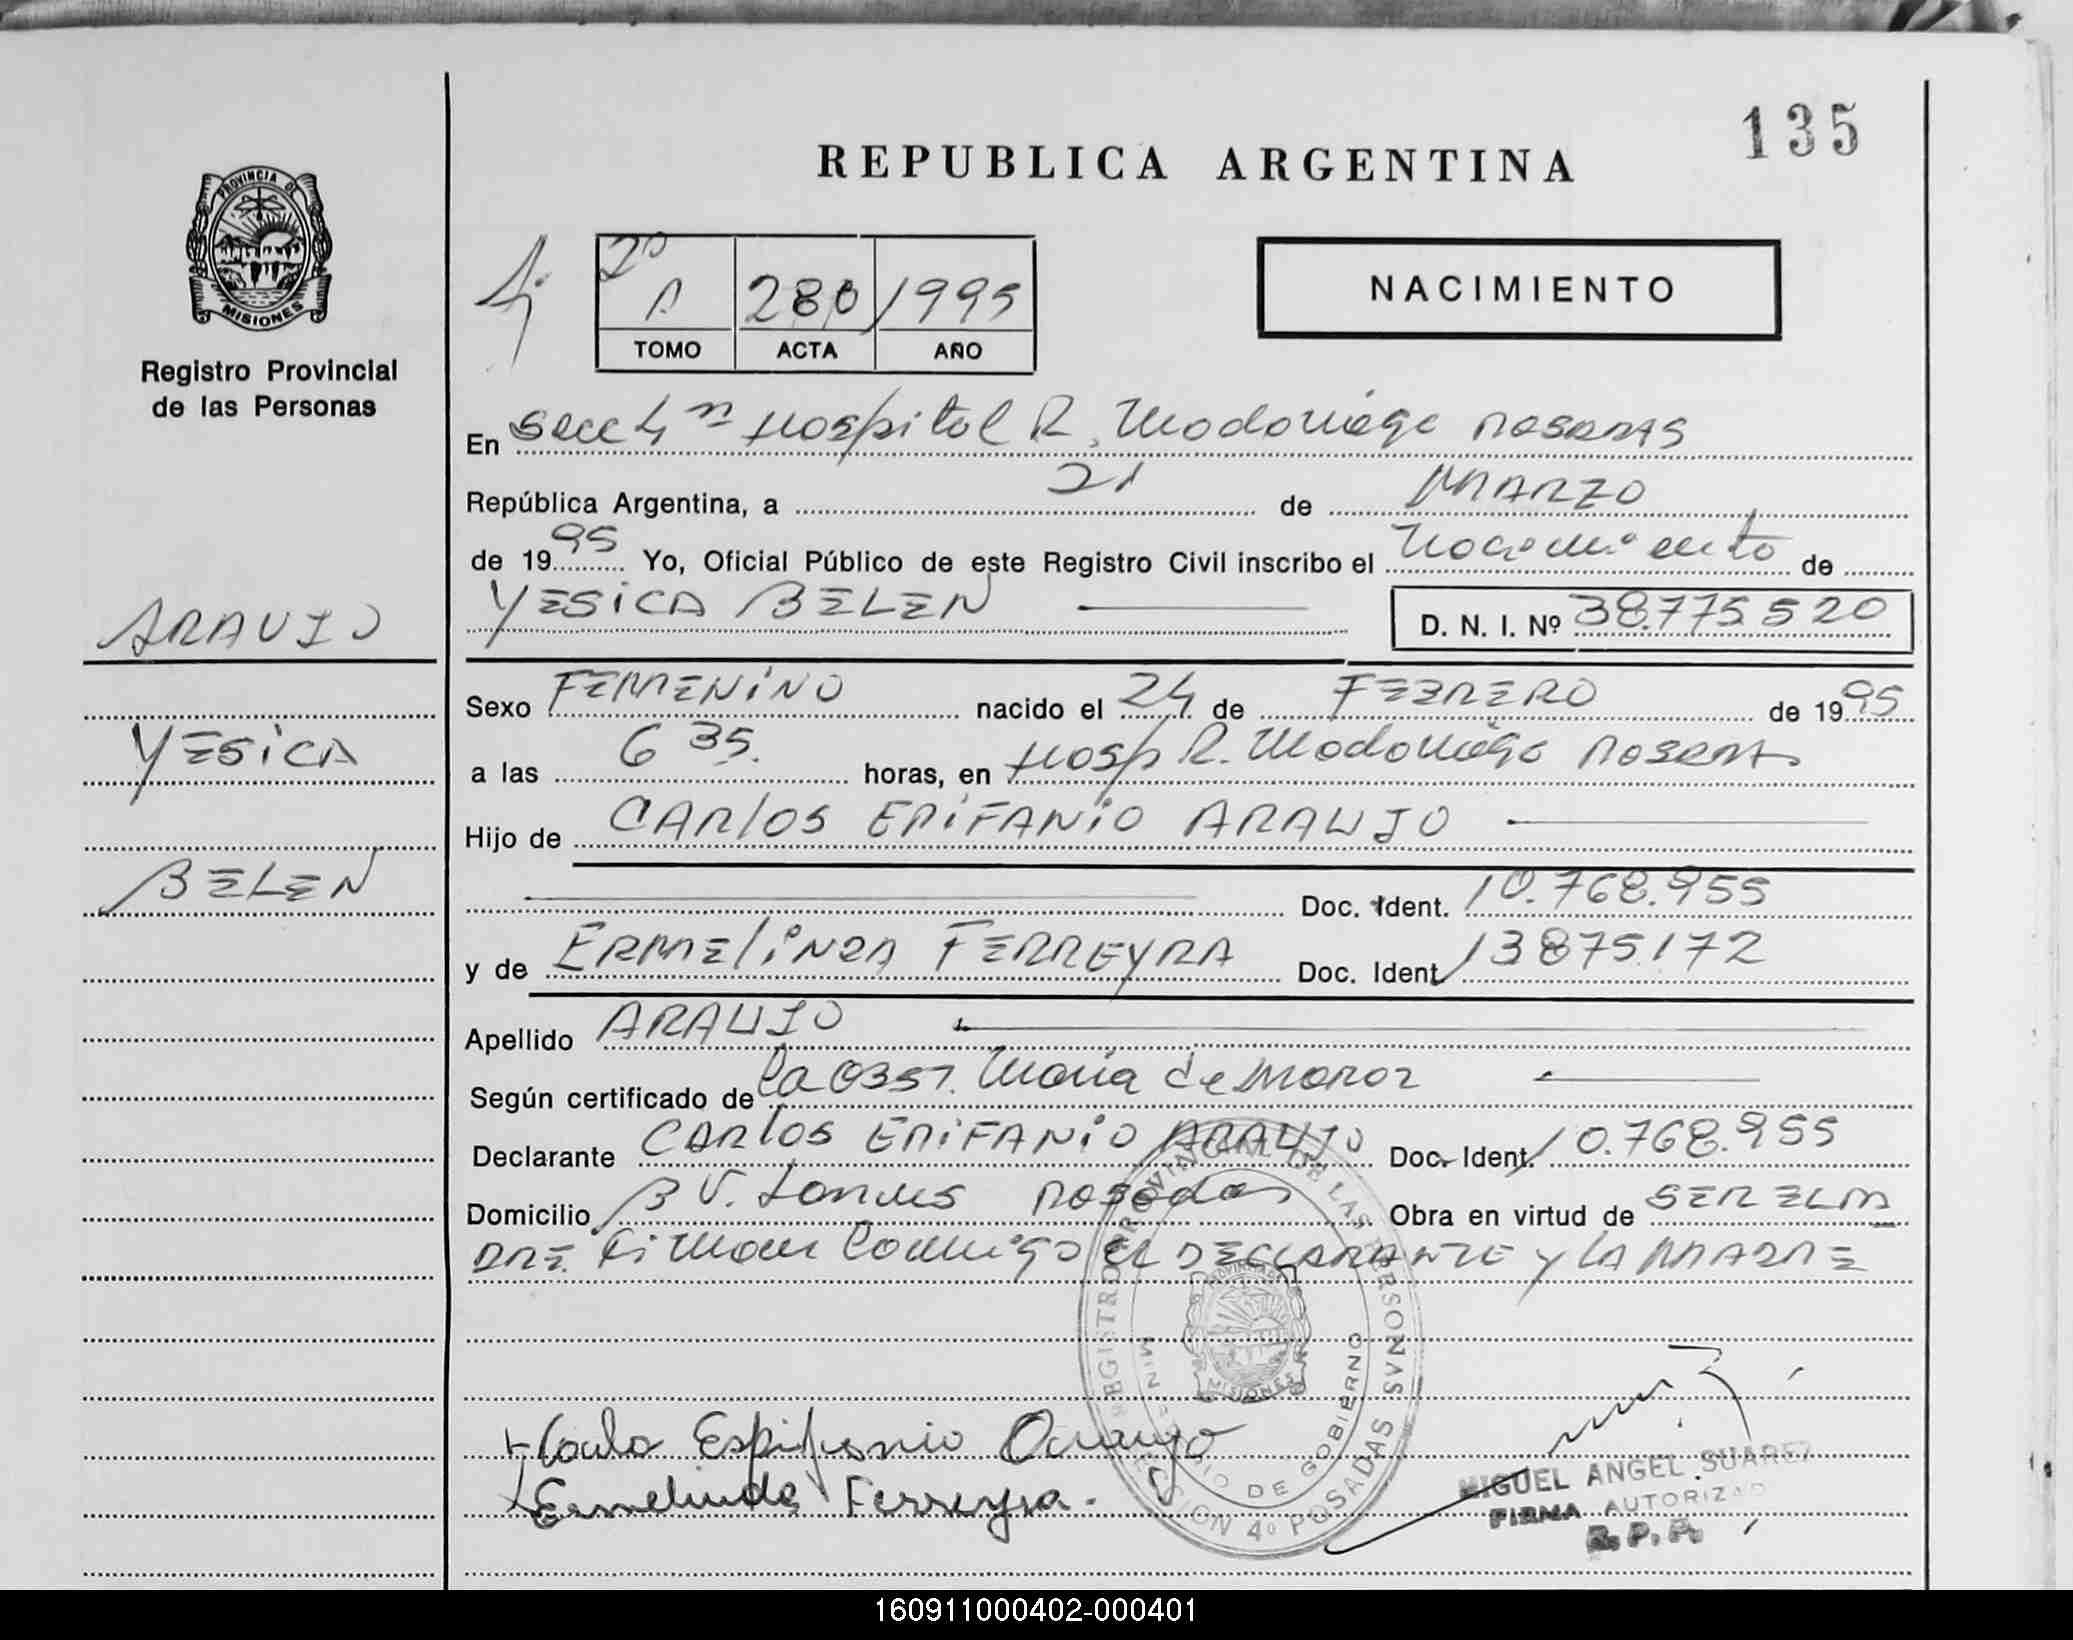 135
REPUBLICA ARGENTINA
PROVINCIA DE
MISIONES
Registro Provincial
de las Personas
2º
A 280 1995
TOMO ACTA AÑO
NACIMIENTO
En Secc 4ª Hospital R. Madariaga POSADAS
República Argentina, a 21 de MARZO
de 1995 Yo, Oficial Público de este Registro Civil inscribo el Nacimiento de
YESICA BELEN D. N. I. Nº 38.775.520
ARAUJO
YESICA
BELEN
Sexo FEMENINO nacido el 24 de FEBRERO de 1995
a las 6 35. horas, en Hosp R. Madariaga POSADAS
Hijo de CARlOS EPIFANIO ARAUJO
Doc. Ident. 10.768.955
y de ERMElINDA FERREYRA Doc. Ident. 13875.172
Apellido ARAUJO
Según certificado de la OBST. Maria de
Declarante CARlOS EPIFANIO ARAUJO Doc. Ident. 10.768.955
Domicilio B V. Posadas Obra en virtud de SER EL PA
DRE. Firman Conmigo el DECLARANTE y LA MADRE
REGISTRO PROVINCIAL DE LAS PERSONAS
MINISTERIO DE GOBIERNO
SECCION 4º POSADAS
PROVINCIA DE
MISIONES
Espifanio Araujo
Ermelinda Ferreyra.
MIGUEL ANGEL SUAREZ
FIRMA AUTORIZADA
R. P. P.
160911000402-000401